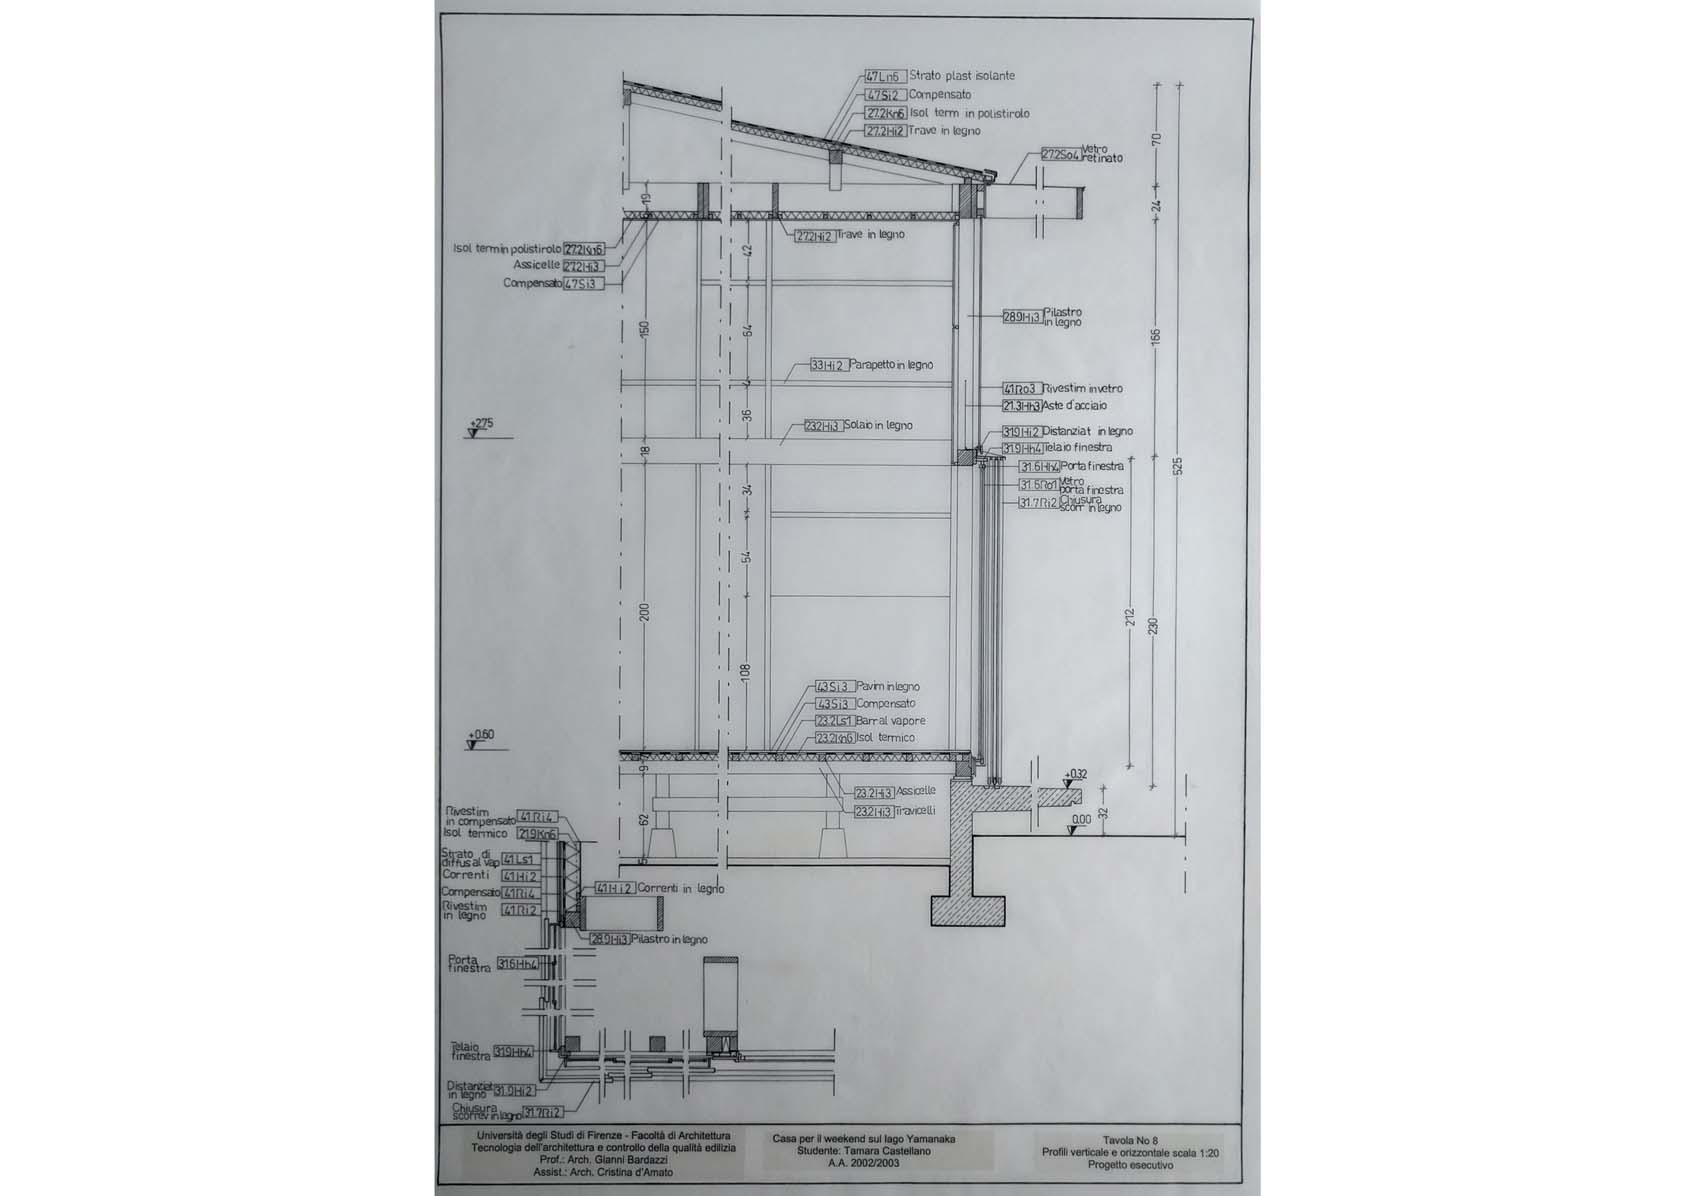 47Ln6 Strato plast isolante
47Si2 Compensato
27.2Kn6 Isol term in polistirolo
27.2Hi2 Trave in legno
27.2So4 Vetro
retinato
70
24
19
Isol termin polistirolo 27.2Kn6
Assicelle 27.2Hi3
Compensato 47Si3
27.2Hi2 Trave in legno
42
28.9Hi3 Pilastro
in legno
150
64
166
33Hi2 Parapetto in legno
4
41Ro3 Rivestim invetro
21.3Hh3 Aste d'acciaio
36
232Hi3 Solaio in legno
+275
319Hi2 Distanziat in legno
31.9Hh4 Telaio finestra
18
31.6Hh4 Porta finestra
31.6Ro1 Vetro
porta finestra
31.7Ri2 Chiusura
scorr in legno
525
34
54
200
212
230
108
43Si3 Pavim in legno
43Si3 Compensato
23.2Ls1 Barr al vapore
23.2Kn6 Isol termico
+0.60
9
+0.32
23.2Hi3 Assicelle
23.2Hi3 Travicelli
62
32
0.00
5
Rivestim
in compensato 41Ri4
Isol termico 21.9Kn6
Strato di
diffus al vap 41Ls1
Correnti 41Hi2
Compensato 41Ri4
Rivestim
in legno 41Ri2
41Hi2 Correnti in legno
28.9Hi3 Pilastro in legno
Porta
finestra 31.6Hh4
Telaio
finestra 319Hh4
Distanziat
in legno 31.9Hi2
Chiusura
scorrev in legno 31.7Ri2
Università degli Studi di Firenze - Facoltà di Architettura
Tecnologia dell'architettura e controllo della qualità edilizia
Prof.: Arch. Gianni Bardazzi
Assist.: Arch. Cristina d'Amato
Casa per il weekend sul lago Yamanaka
Studente: Tamara Castellano
A.A. 2002/2003
Tavola No 8
Profili verticale e orizzontale scala 1:20
Progetto esecutivo